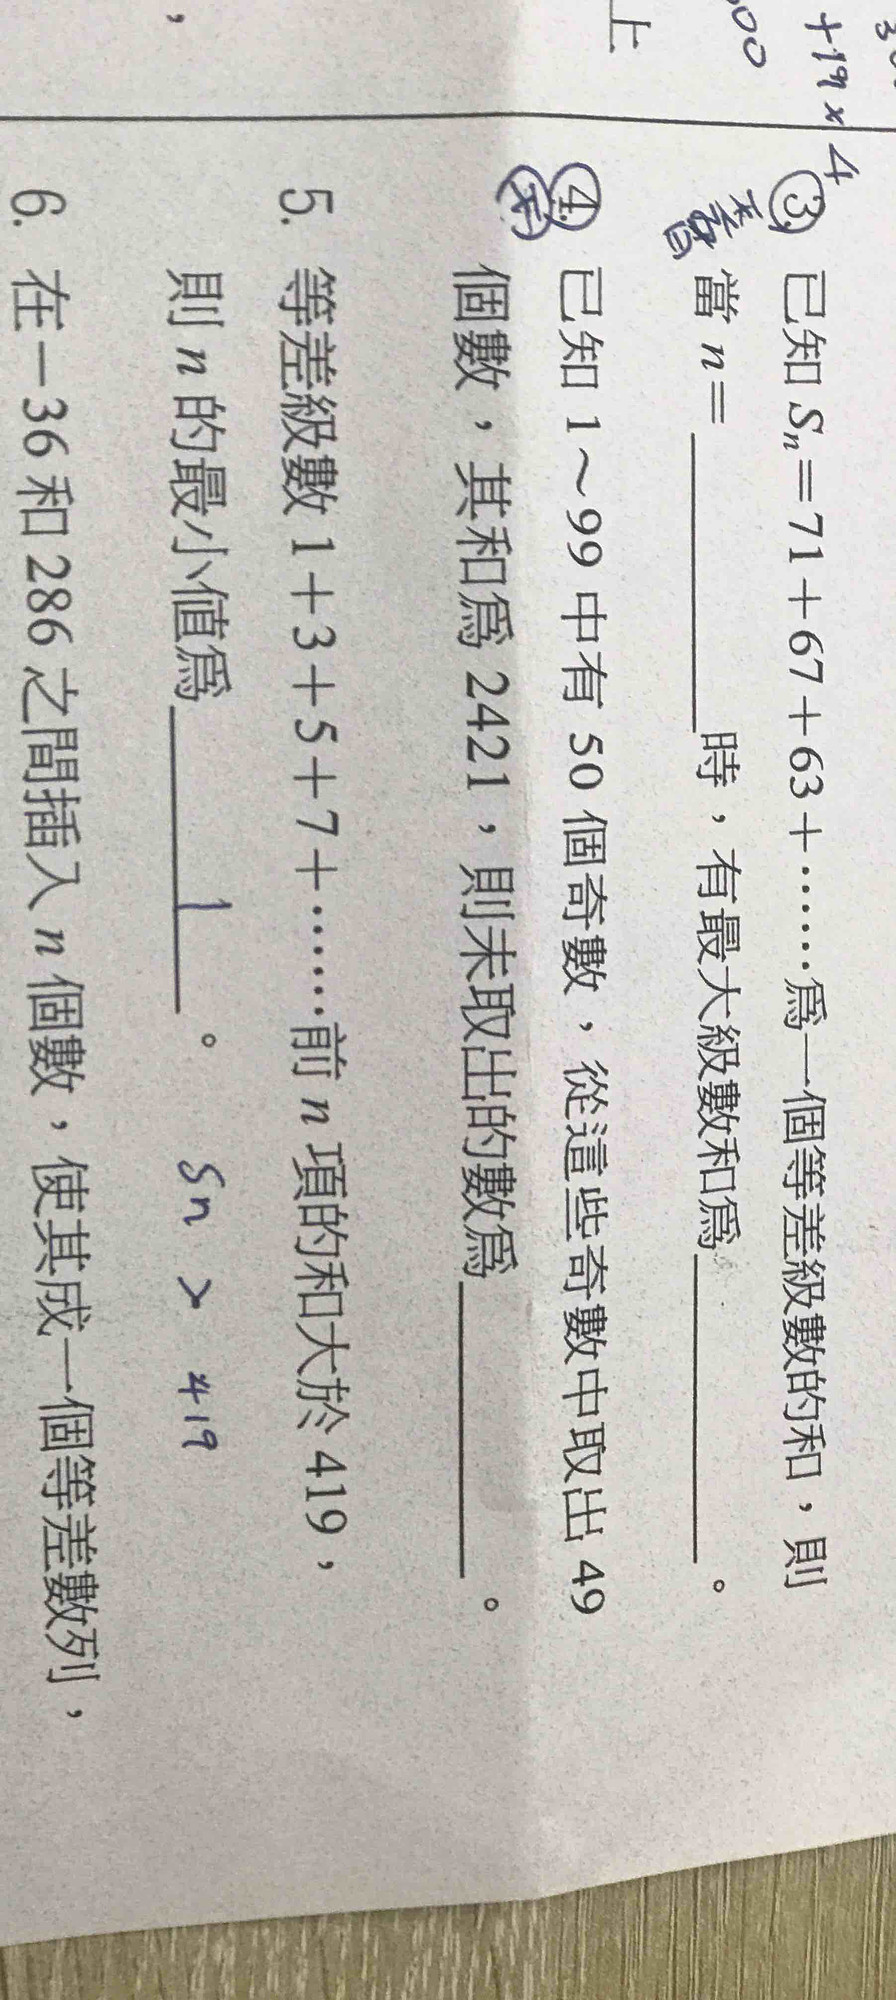 +19×4
00
上
③ 已知 Sₙ=71+67+63+……為一個等差級數的和，則
當 n=＿＿＿＿＿時，有最大級數和為＿＿＿＿＿。
④ 已知 1～99 中有 50 個奇數，從這些奇數中取出 49
個數，其和為 2421，則未取出的數為＿＿＿＿＿。
5. 等差級數 1+3+5+7+……前 n 項的和大於 419，
則 n 的最小值為＿＿＿1＿＿。 Sn > 419
6. 在－36 和 286 之間插入 n 個數，使其成一個等差數列，